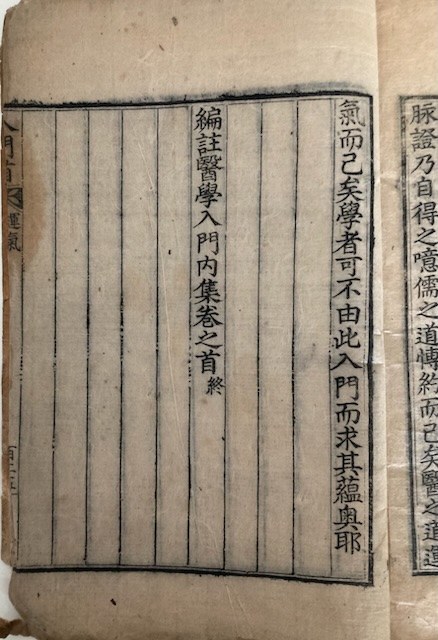 脉證乃自得之噫儒之道愽約而已矣醫之道運
氣而已矣學者可不由此入門而求其蘊奥耶
編註醫學入門内集卷之首終
入門首
運氣